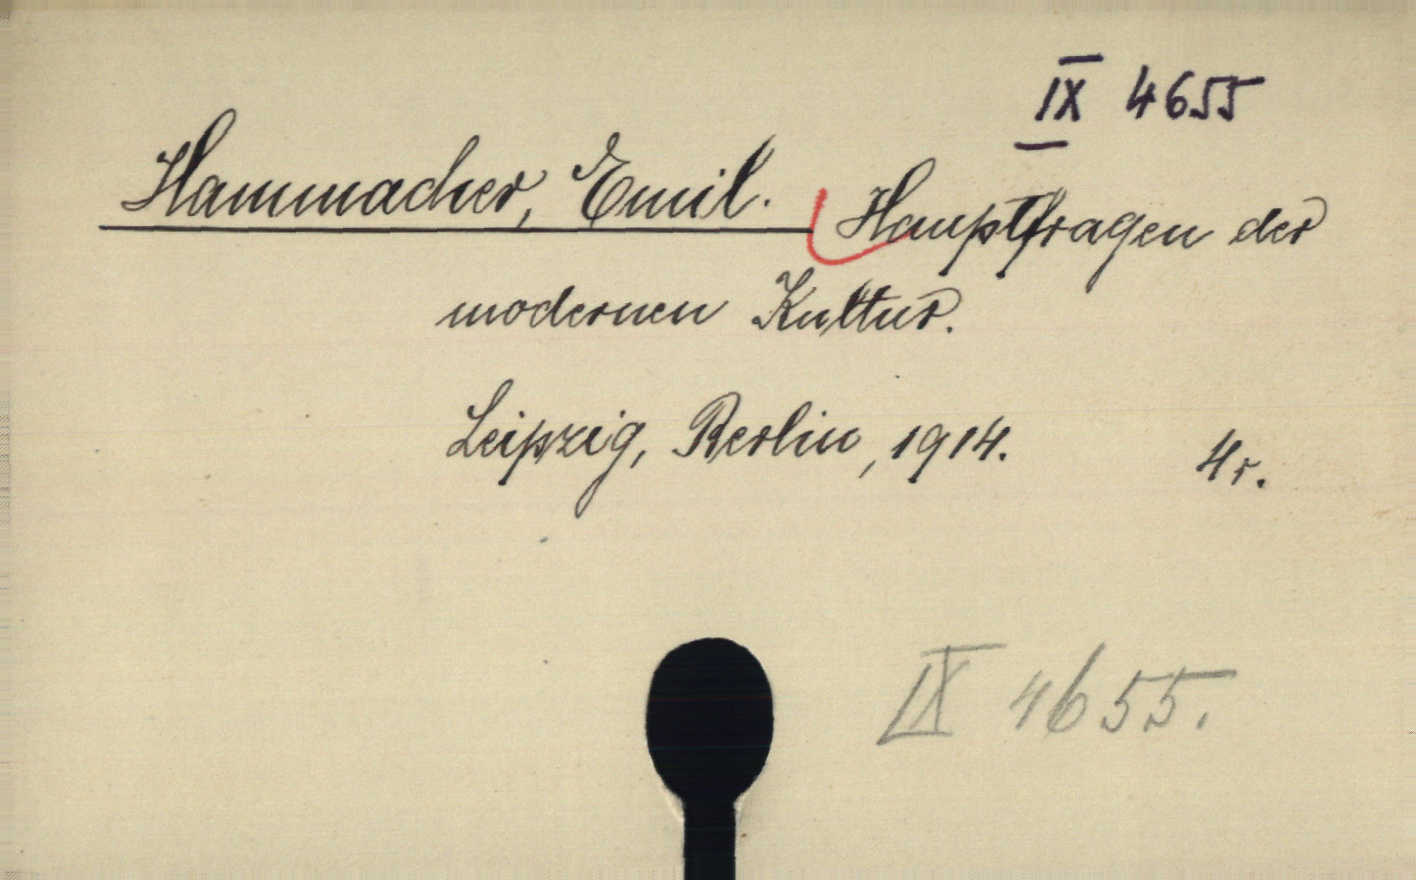 IX 4655
Hammacher, Emil. Hauptfragen der
modernen Kultur.
Leipzig, Berlin, 1914. 4r.
IX 4655.